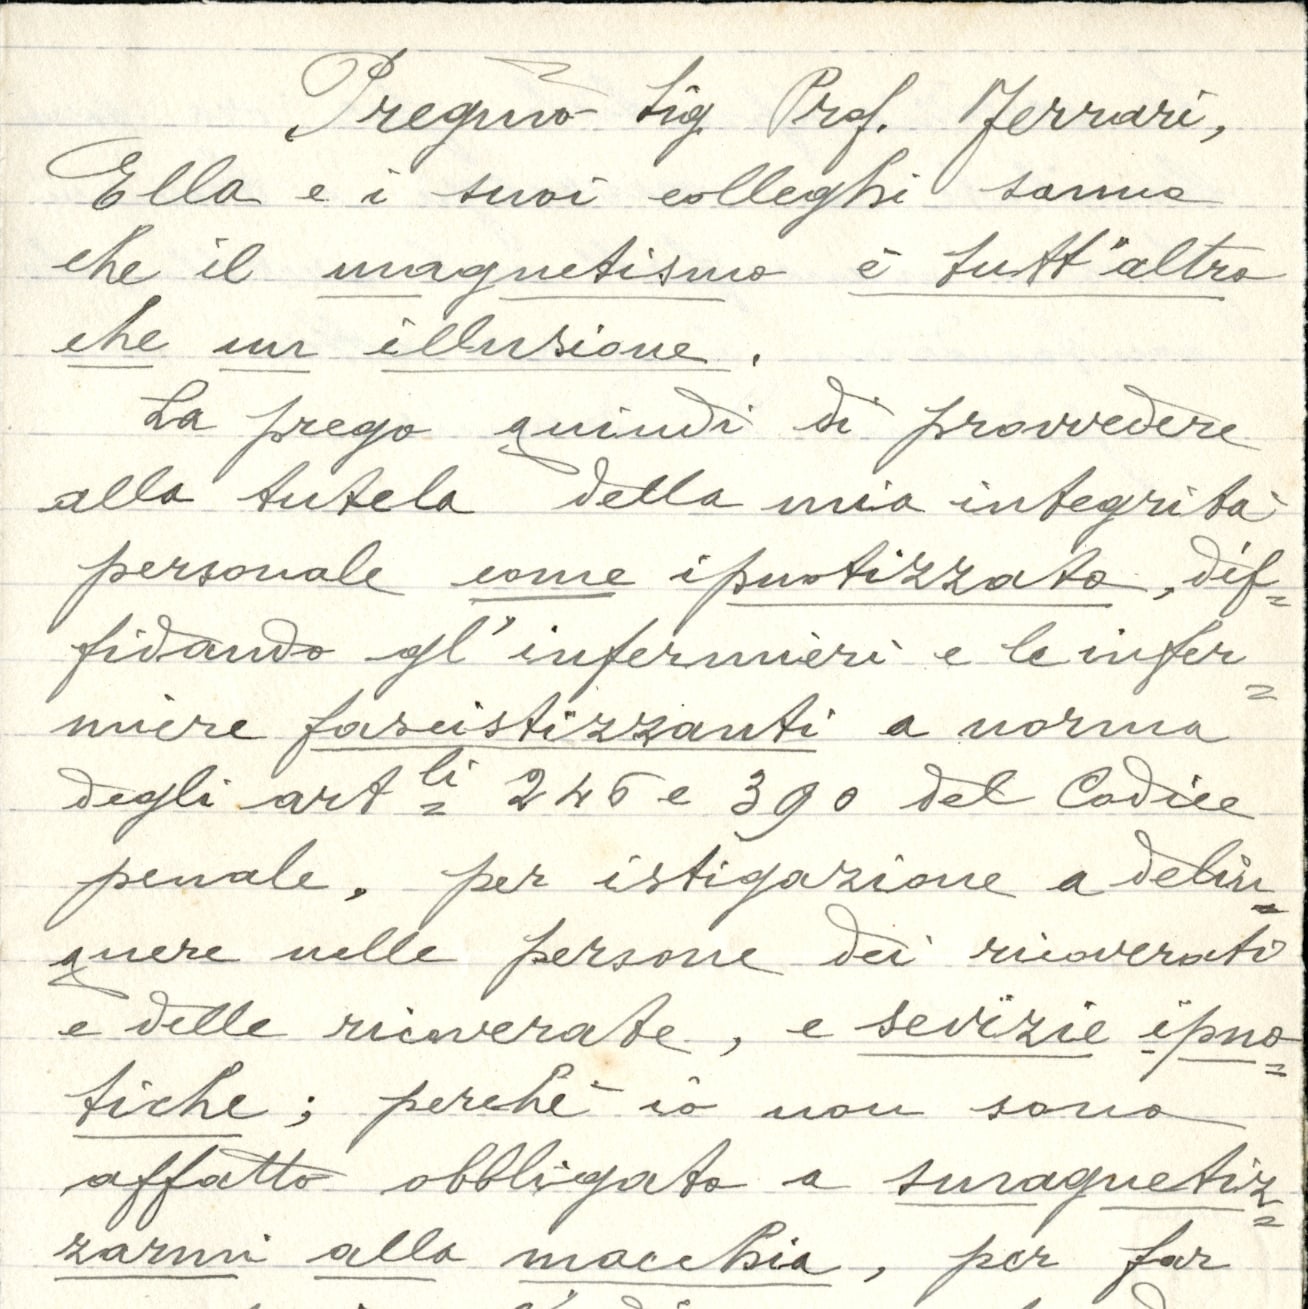 Pregmo Sig. Prof. Ferrari,
Ella e i suoi colleghi sanno
che il magnetismo è tutt'altro
che un illusione.
La prego quindi di provvedere
alla tutela della mia integrità
personale come ipnotizzato, dif=
fidando gl'infermieri e le infer=
miere fascistizzanti a norma
degli artli 246 e 390 del Codice
penale, per istigazione a delin=
quere nelle persone dei ricoverati
e delle ricoverate, e sevizie ipno=
tiche; perchè io non sono
affatto obbligato a smagnetiz=
zarmi alla macchia, per far